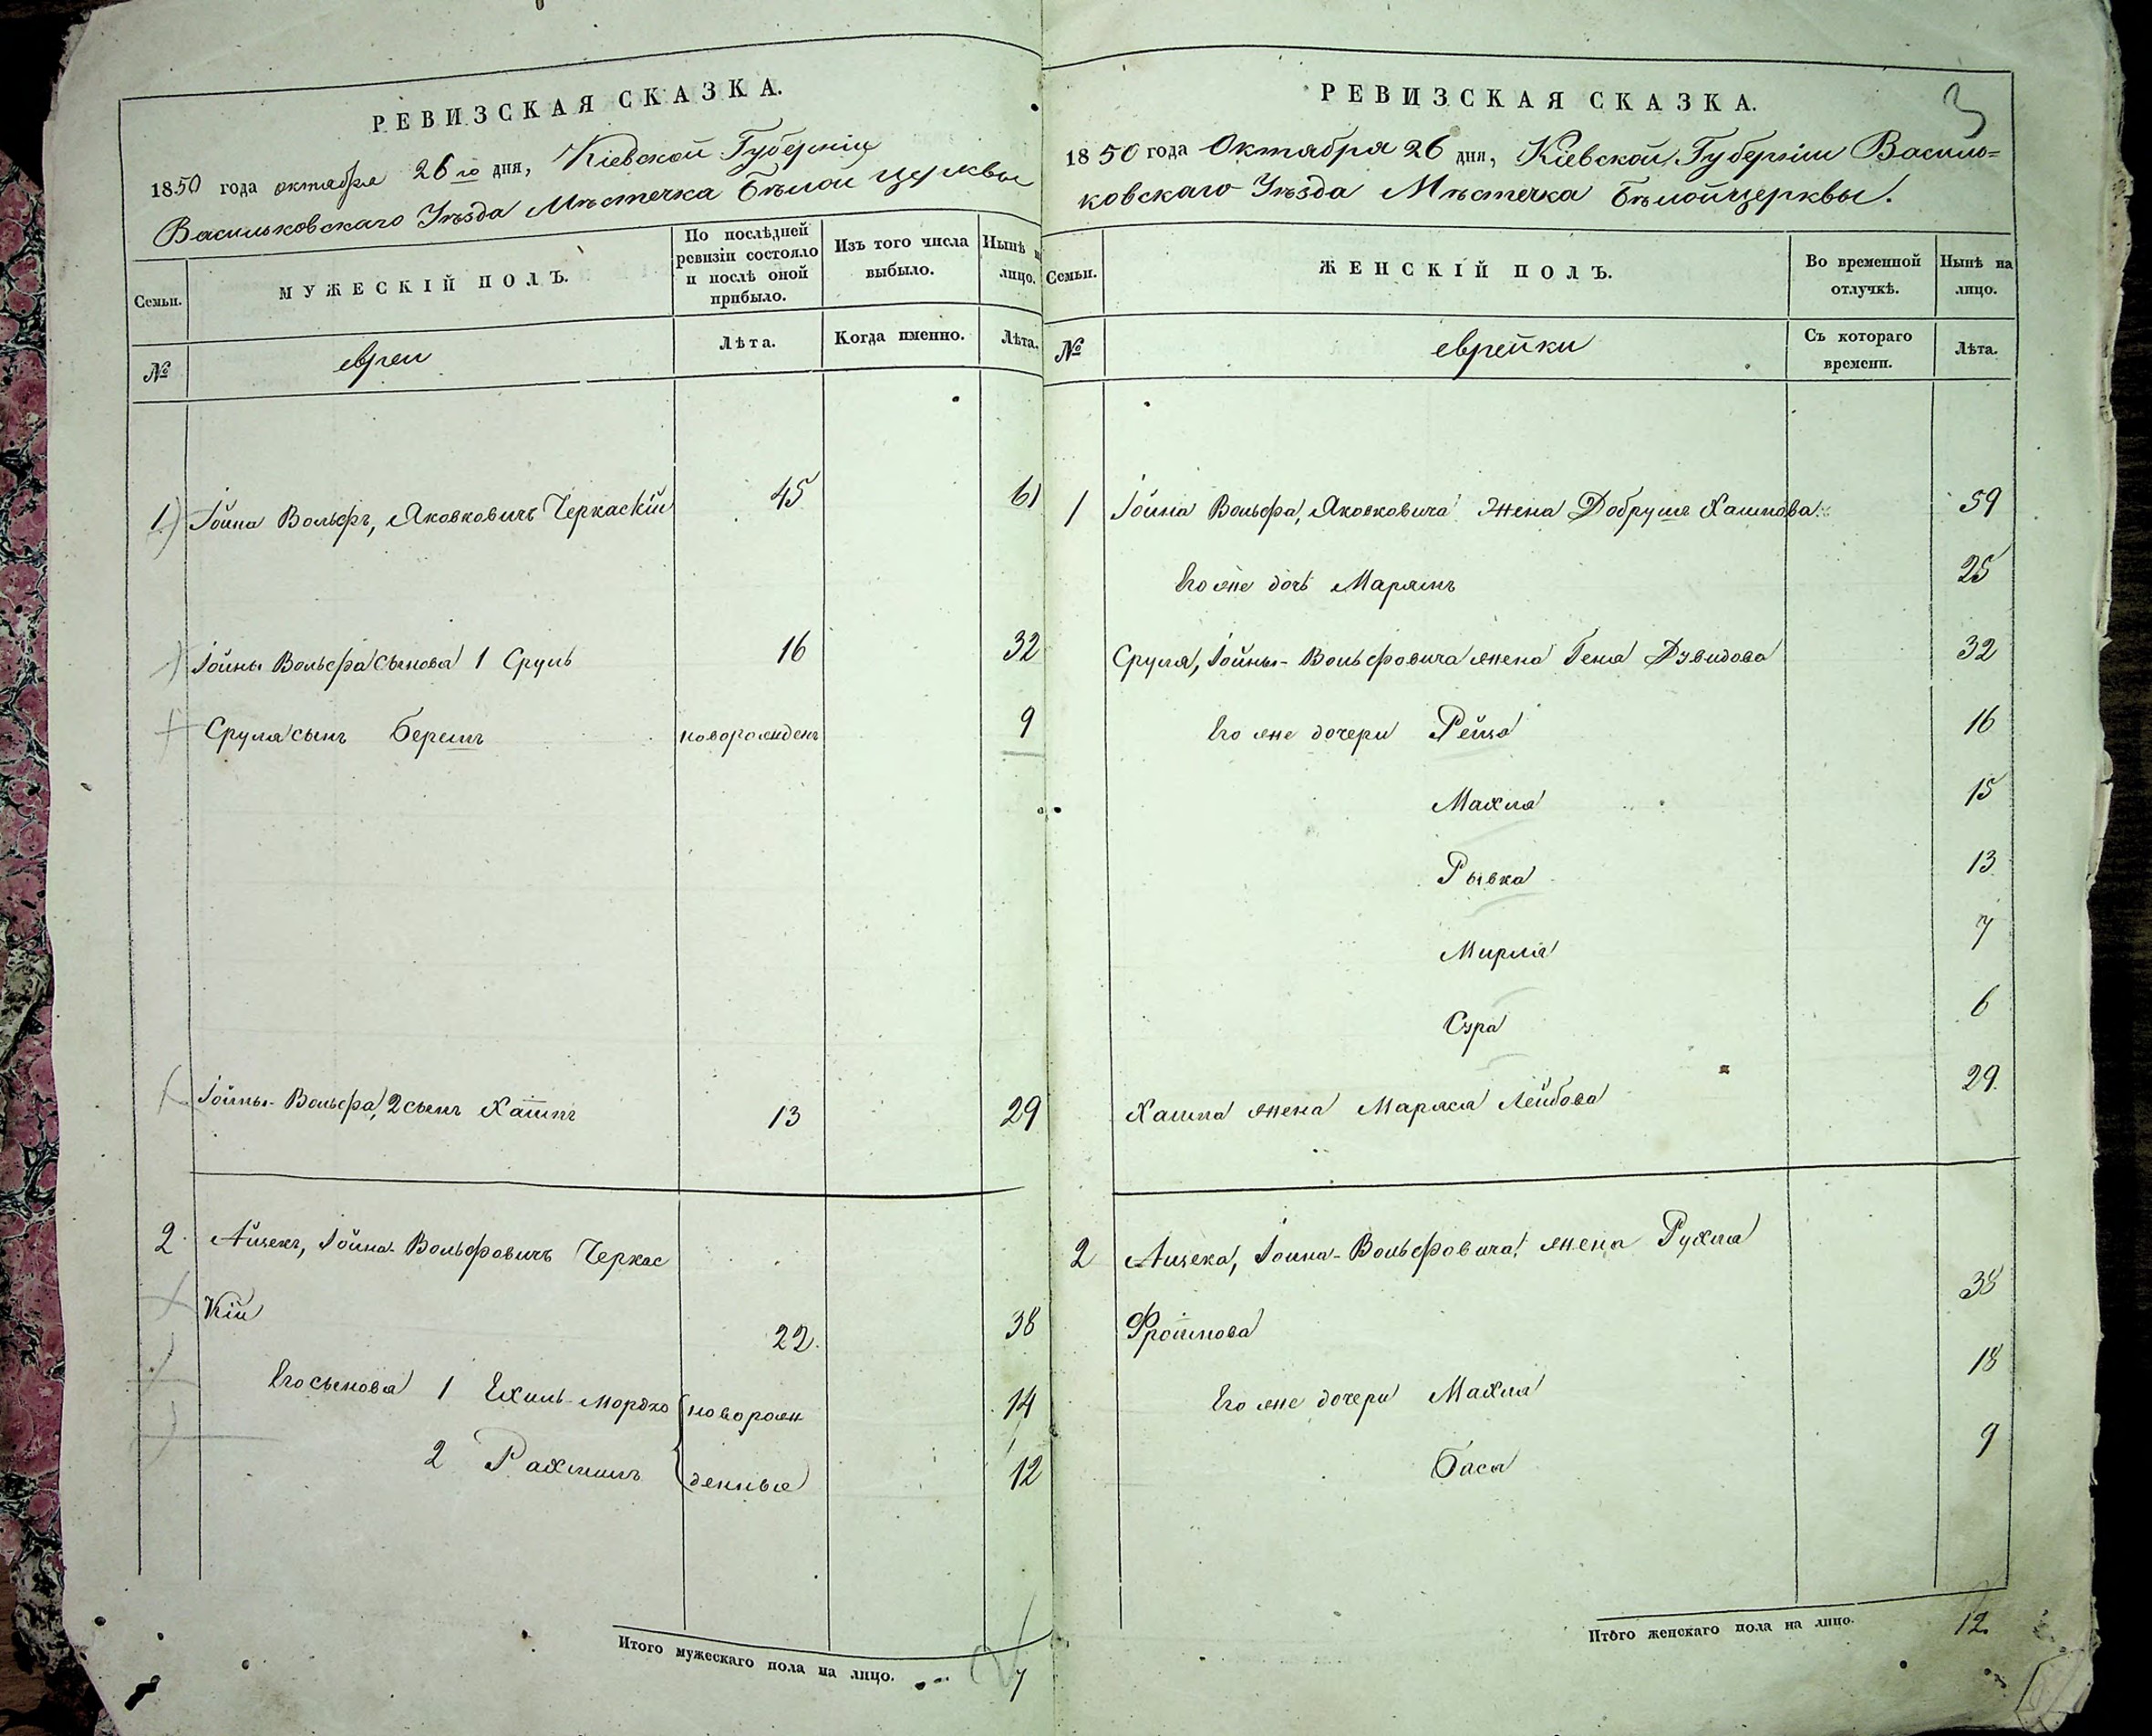 РЕВИЗСКАЯ СКАЗКА.
1850 года октября 26го дня, Кіевской Губерніи
Васильковскаго Уѣзда Мѣстечка Бѣлой церквы
Семьи. МУЖЕСКІЙ ПОЛЪ. По послѣдней ревизіи состояло и послѣ оной прибыло. Изъ того числа выбыло. Нынѣ н лицо.
№ евреи Лѣта. Когда именно. Лѣта.
1) Іойна Вольфъ, Яковковичъ Черкаскій 45 61
Іойны Вольфа сынова 1 Сруль 16 32
Сруля сынъ Берышъ новорожденъ 9
Іойны-Вольфа, 2 сынъ Хаимъ 13 29
2 Айзекъ, Іойна-Вольфовичъ Черкас
кій 22. 38
Его сынова 1 Ехиль-Мордко новорож 14
2 Рахмиль денные 12
Итого мужескаго пола на лицо. 7
3
РЕВИЗСКАЯ СКАЗКА.
1850 года Октября 26 дня, Кіевской Губерніи Василь=
ковскаго Уѣзда Мѣстечка Бѣлойцерквы.
Семьи. ЖЕНСКІЙ ПОЛЪ. Во временной отлучкѣ. Нынѣ на лицо.
№ еврейки Съ котораго времени. Лѣта.
1 Іойна Вольфа, Яковковича жена Добрушъ Хаимова 59
Его же дочь Марьямъ 25
Сруля, Іойны-Вольфовича жена Гена Дувидова 32
Его же дочери Рейза 16
Махля 15
Рывка 13
Мирля 7
Сура 6
Хаима жена Маряся Лейбова 29
2 Айзека, Іойна-Вольфовича, жена Рухля
Фроимова 38
Его же дочери Махля 18
Бася 9
Итого женскаго пола на лицо. 12.